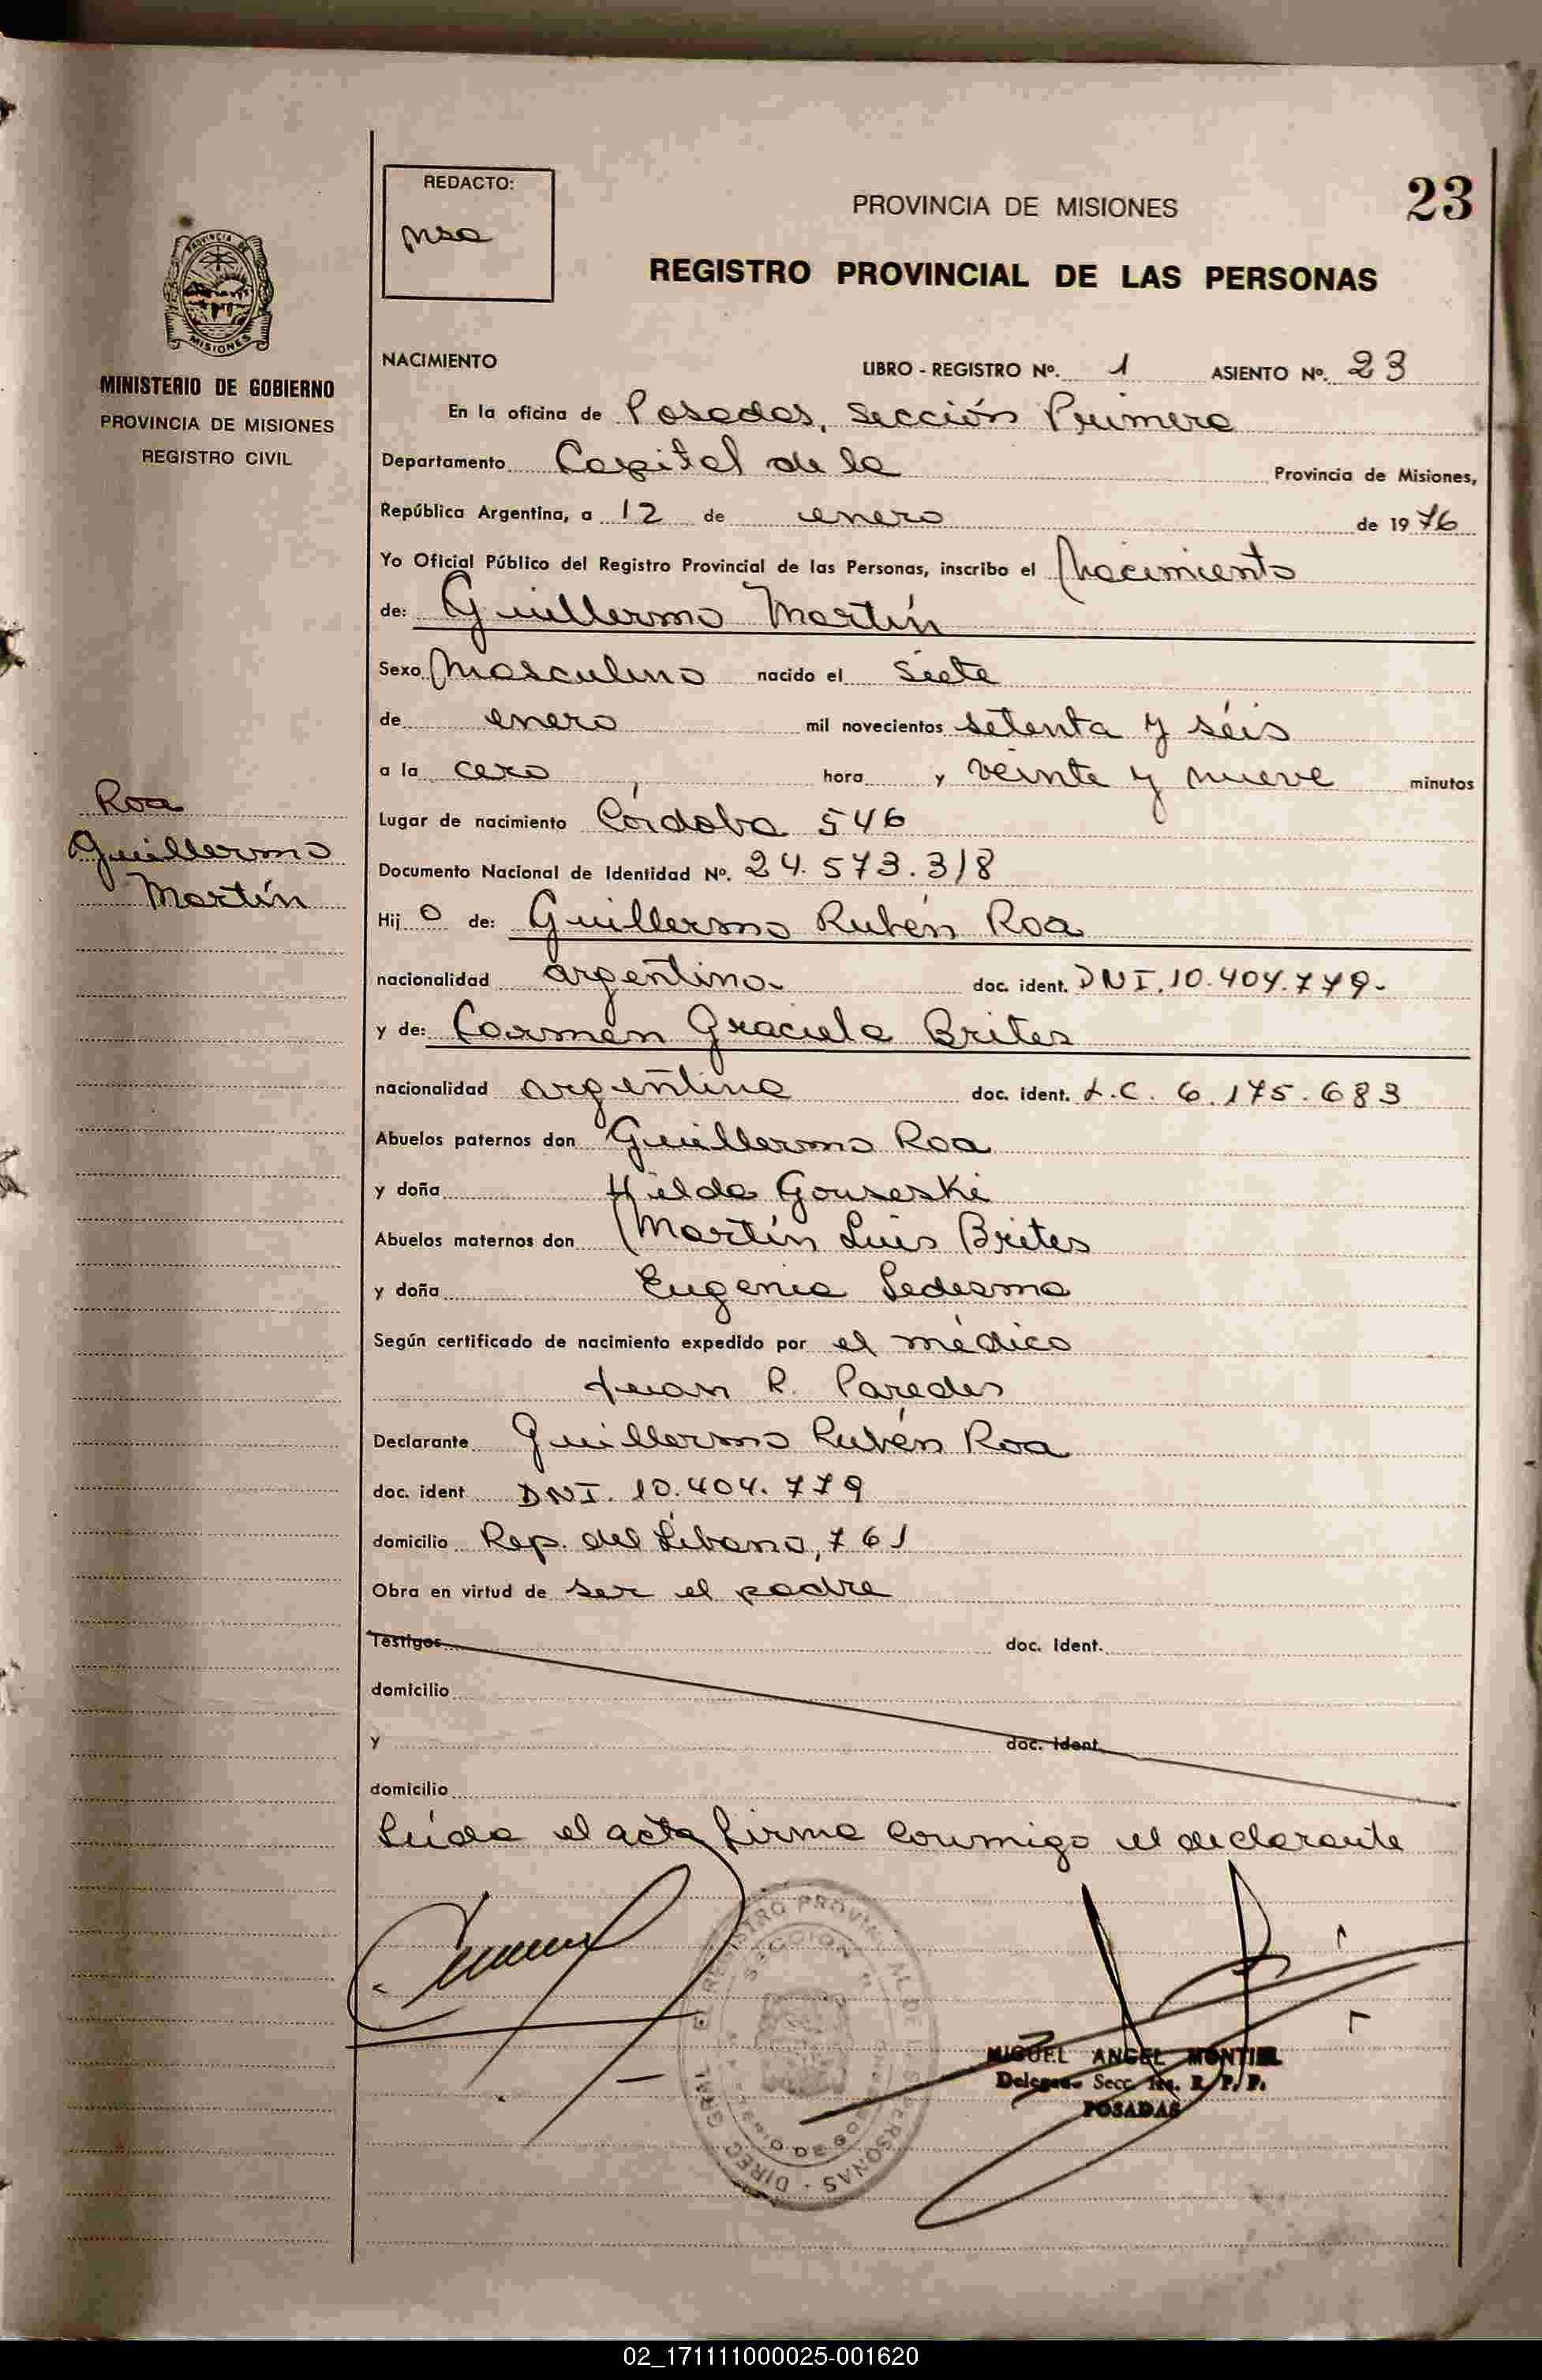 REDACTO:
msa
PROVINCIA DE MISIONES
23
REGISTRO PROVINCIAL DE LAS PERSONAS
PROVINCIA DE MISIONES
MINISTERIO DE GOBIERNO
PROVINCIA DE MISIONES
REGISTRO CIVIL
Roa
Guillermo
Martín
NACIMIENTO LIBRO - REGISTRO Nº. 1 ASIENTO Nº. 23
En la oficina de Posadas, Sección Primera
Departamento Capital de la Provincia de Misiones,
República Argentina, a 12 de enero de 1976
Yo Oficial Público del Registro Provincial de las Personas, inscribo el Nacimiento
de: Guillermo Martín
Sexo Masculino nacido el siete
de enero mil novecientos setenta y séis
a la cero hora y veinte y nueve minutos
Lugar de nacimiento Córdoba 546
Documento Nacional de Identidad Nº. 24.573.318
Hij o de: Guillermo Rubén Roa
nacionalidad argentino- doc. ident. DNI. 10.404.779-
y de: Carmen Graciela Brites
nacionalidad argentina doc. ident. L.C. 6.175.683
Abuelos paternos don Guillermo Roa
y doña Hilda Gouseski
Abuelos maternos don Martín Luis Brites
y doña Eugenia Ledesma
Según certificado de nacimiento expedido por el médico
Juan R. Paredes
Declarante Guillermo Rubén Roa
doc. ident DNI. 10.404.779
domicilio Rep. del Líbano, 761
Obra en virtud de ser el padre
Testigos doc. Ident.
domicilio
y doc. Ident.
domicilio
Leída el acta firma conmigo el declarante
MIGUEL ANGEL MONTIEL
Delegado Secc. 1ra. R. P. P.
POSADAS
02_171111000025-001620